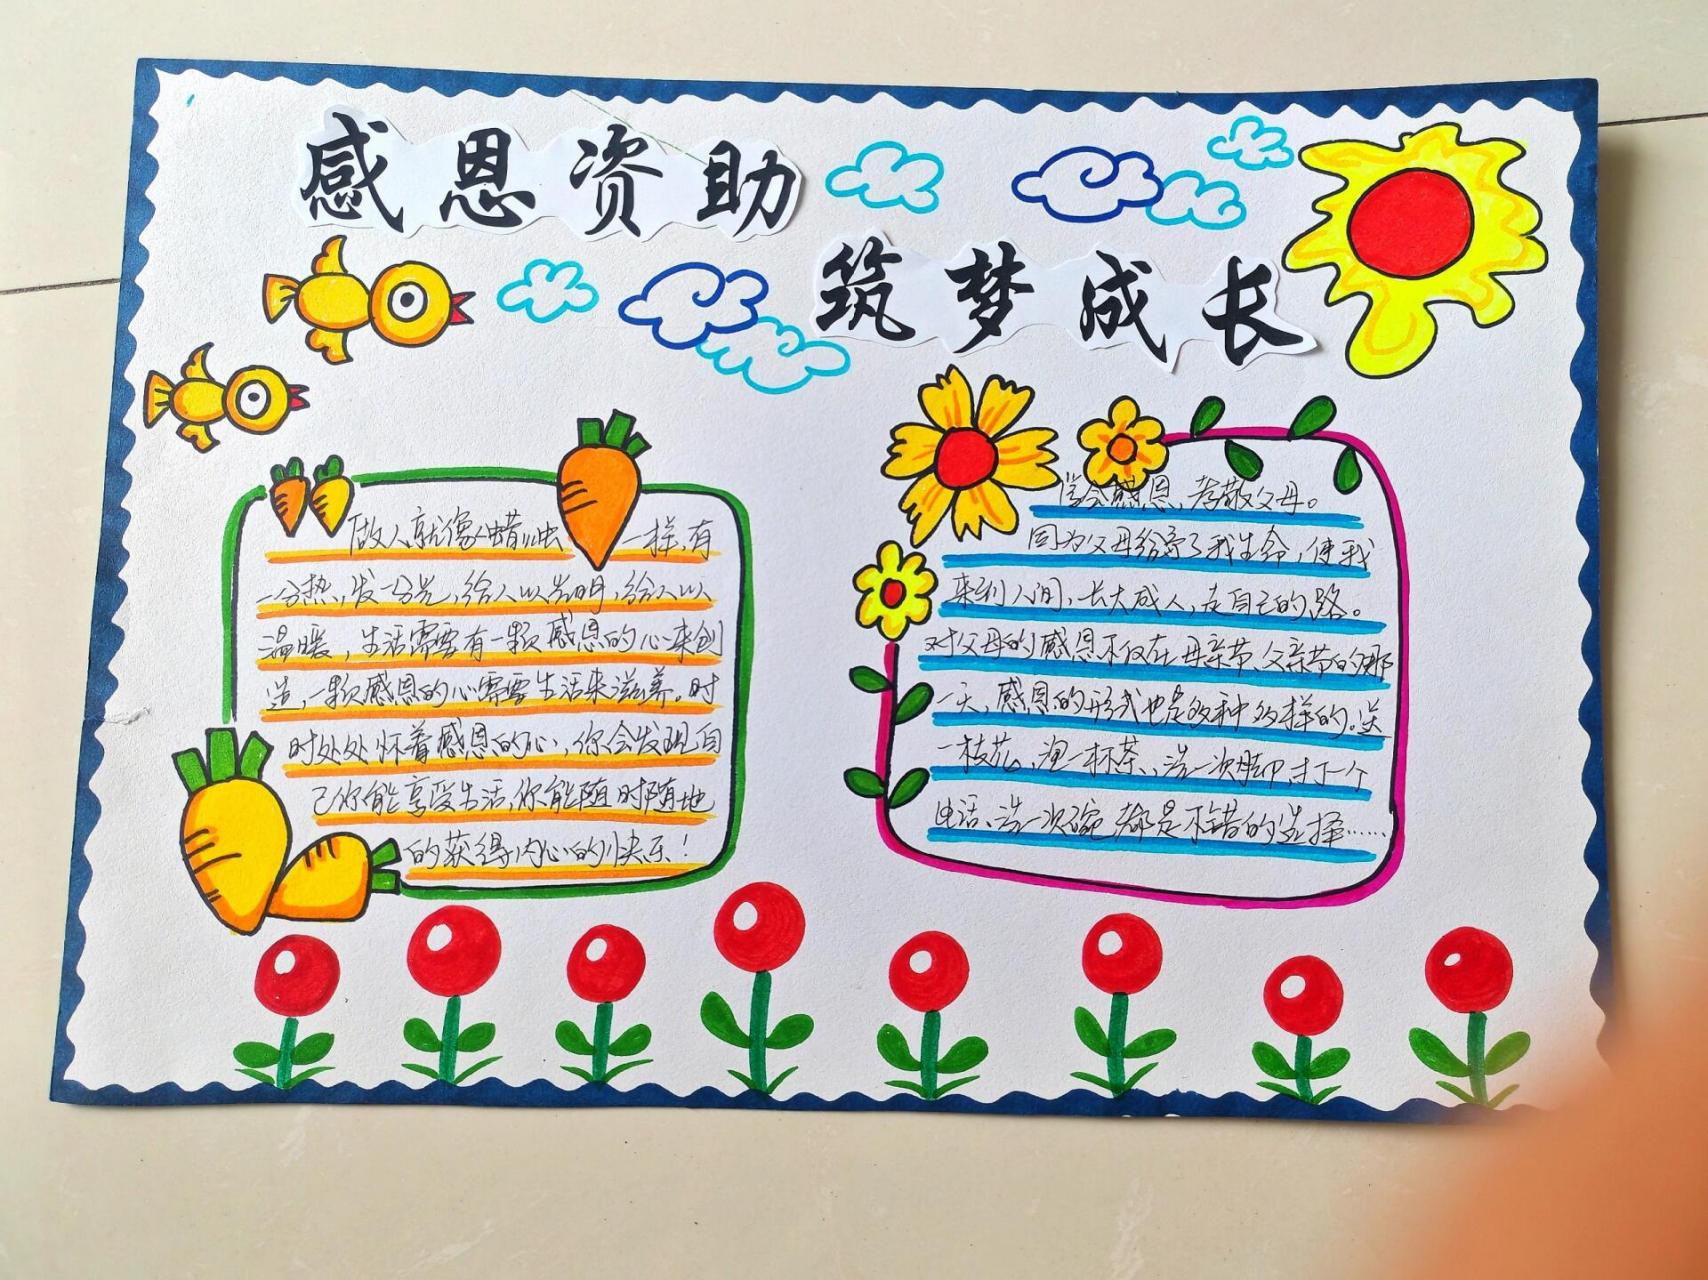 感恩资助
筑梦成长
做人就像蜡虫 一样,有
一分热,发一分光,给人以光明,给人以
温暖,生活需要有一颗感恩的心来创
造,一颗感恩的心需要生活来滋养。时
时处处怀着感恩的心,你会发现自
己你能享受生活,你能随时随地
的获得内心的快乐!
学会感恩,孝敬父母。
因为父母给予了我生命,使我
来到人间,长大成人,走自己的路。
对父母的感恩不仅在母亲节、父亲节的那
一天,感恩的形式也是多种多样的。送
一枝花、泡一杯茶、洗一次脚、打一个
电话、洗一次碗 都是不错的选择……